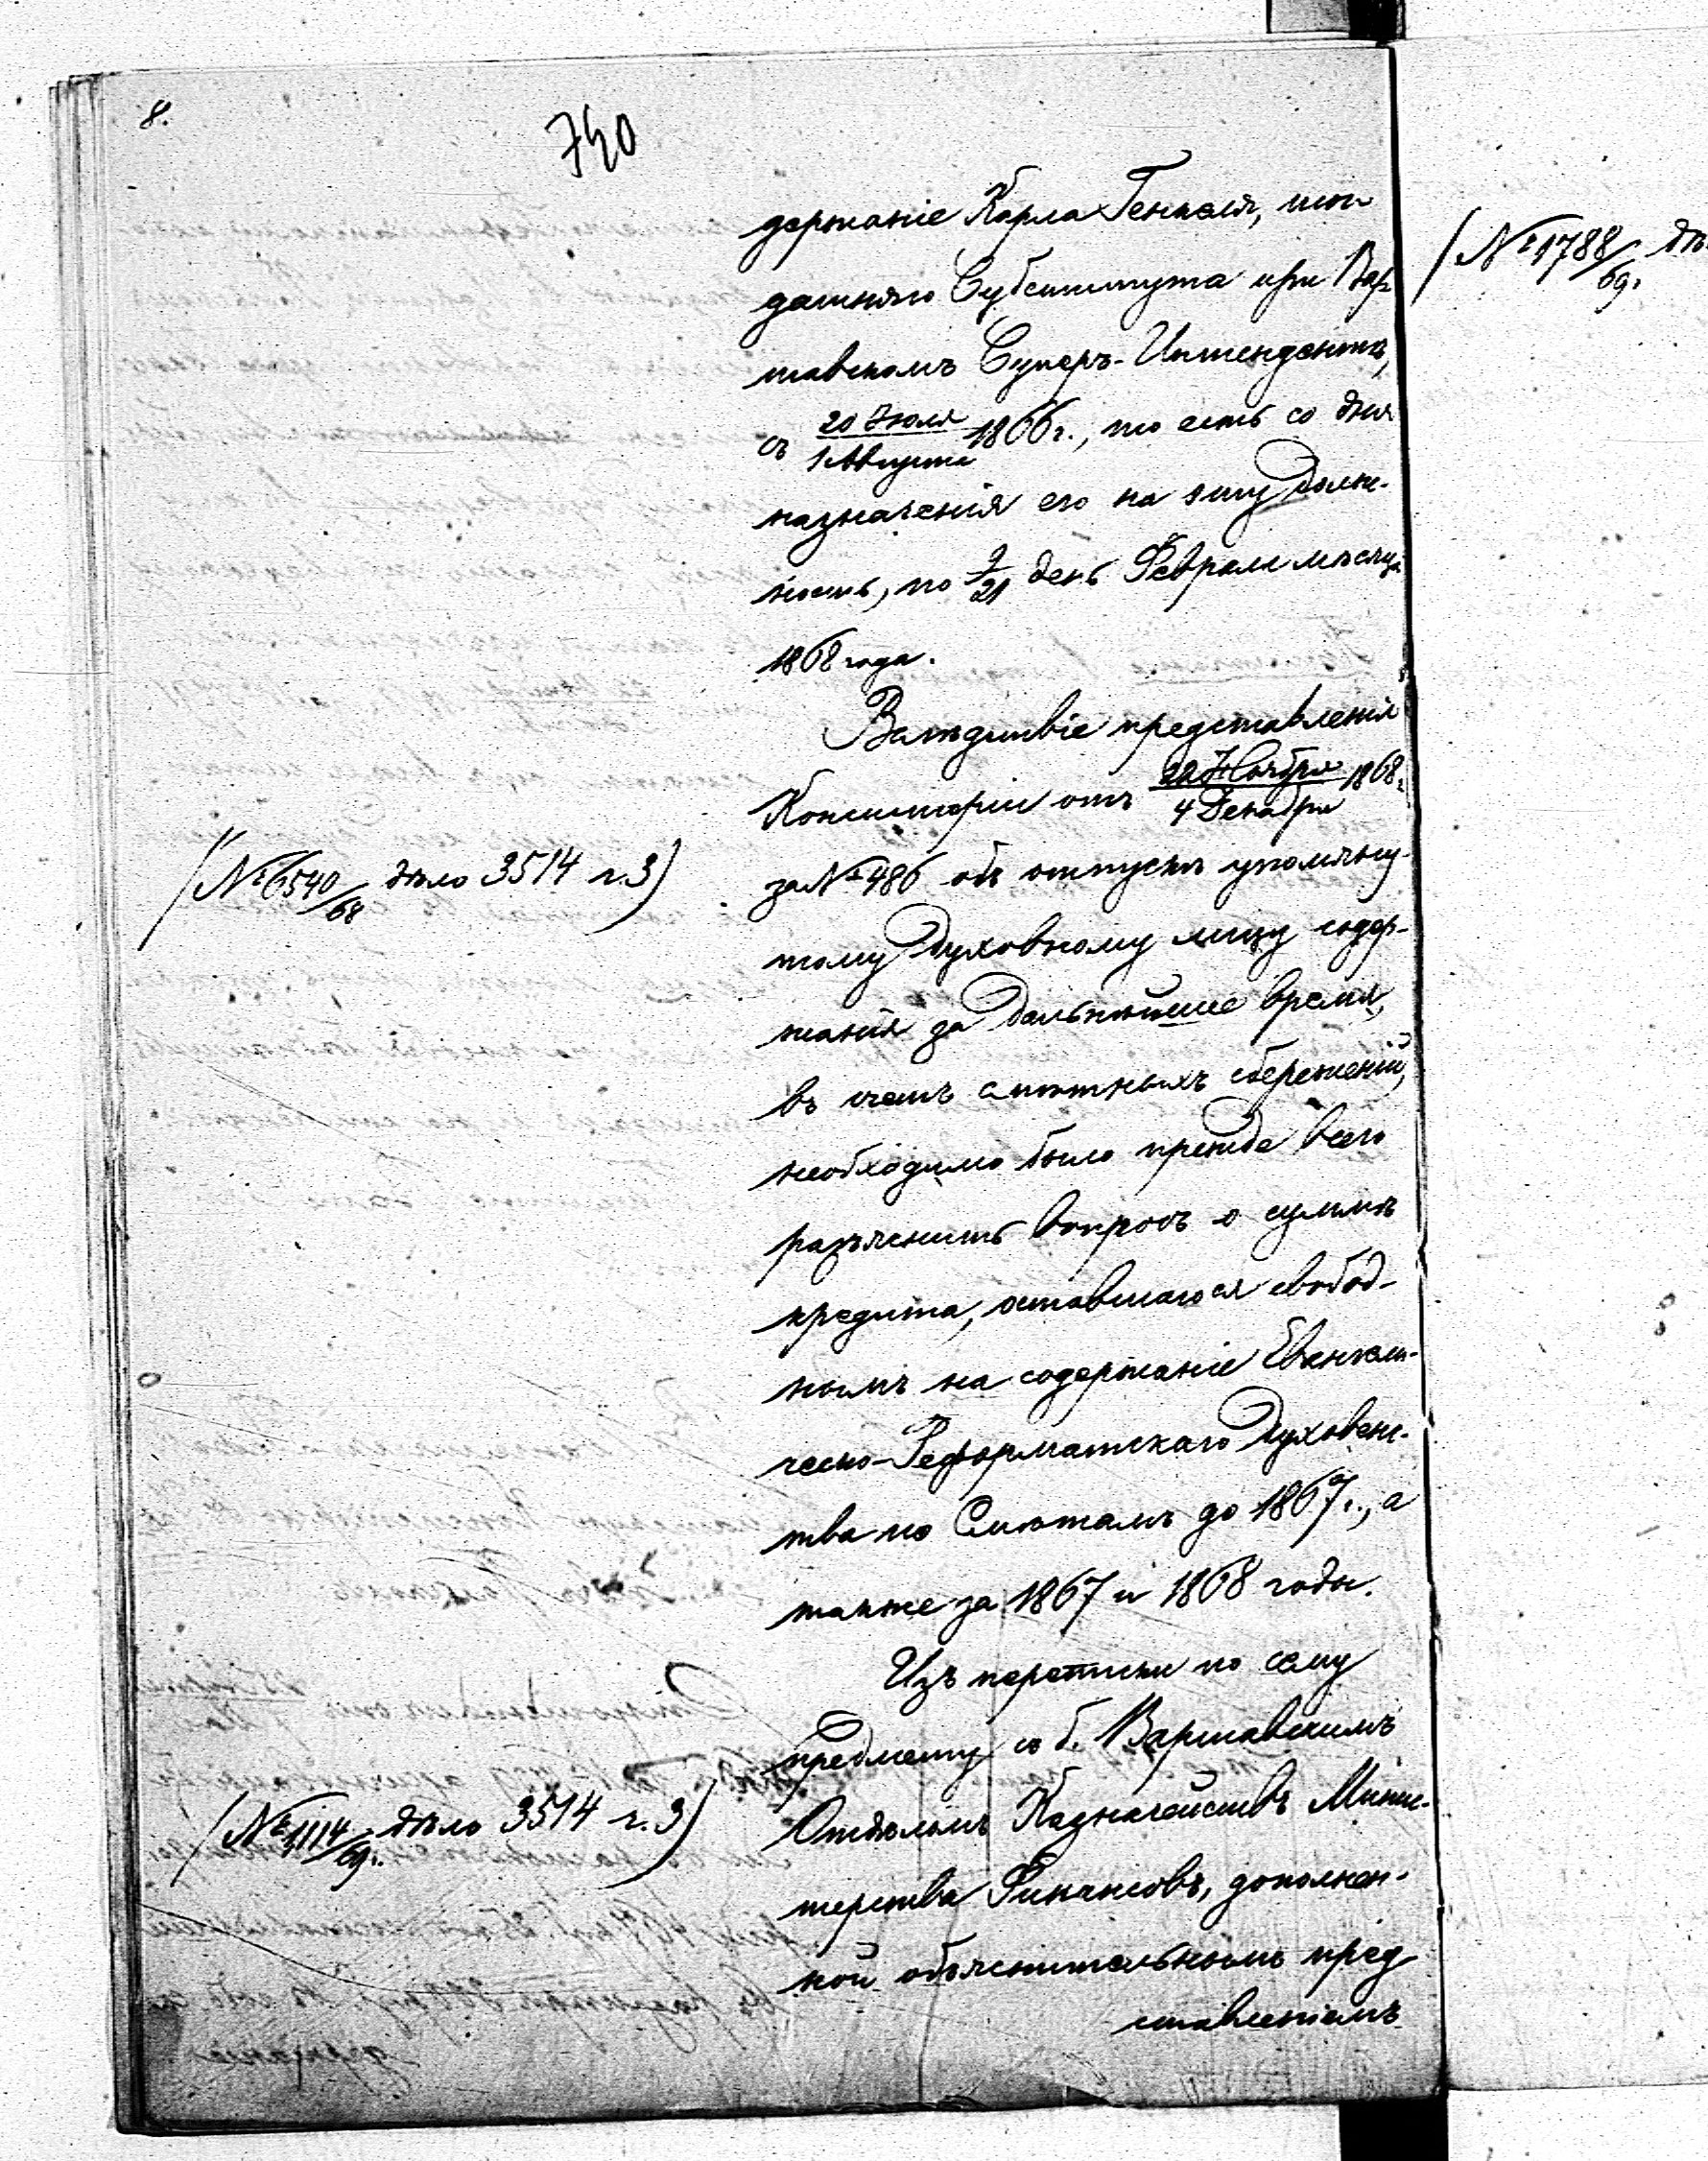 8.
740
держаніе Карла Генкеля, тог-
дашняго Субститута при Вар-
шавскомъ Суперъ-Интендентѣ,
съ 20 Іюля / 1 Августа 1866 г., то есть со дня
назначенія его на эту долж-
ность, по 9/21 день Февраля мѣсяца
1868 года.
Вслѣдствіе представленія
Консисторіи отъ 22 Ноября / 4 Декабря 1868 г.
(№ 6540/68 дѣло 3514 ч. 3)
за № 486 объ отпускѣ упомяну-
тому Духовному лицу содер-
жанія за дальнѣйшее время,
въ счетъ смѣтныхъ сбереженій,
необходимо было прежде всего
разъяснить вопросъ о суммѣ
кредита, оставшагося свобод-
нымъ на содержаніе Евангели-
ческо-Реформатскаго Духовенс-
тва по Смѣтамъ до 1867 г., а
также за 1867 и 1868 годы.
Изъ переписки по сему
предмету съ б. Варшавскимъ
(№ 1114/69 г. дѣло 3514 ч. 3)
Отдѣломъ Казначействъ Минис-
терства Финансовъ, дополнен-
ной объяснительнымъ пред
ставленіемъ
(№ 1788/69 г. дѣ